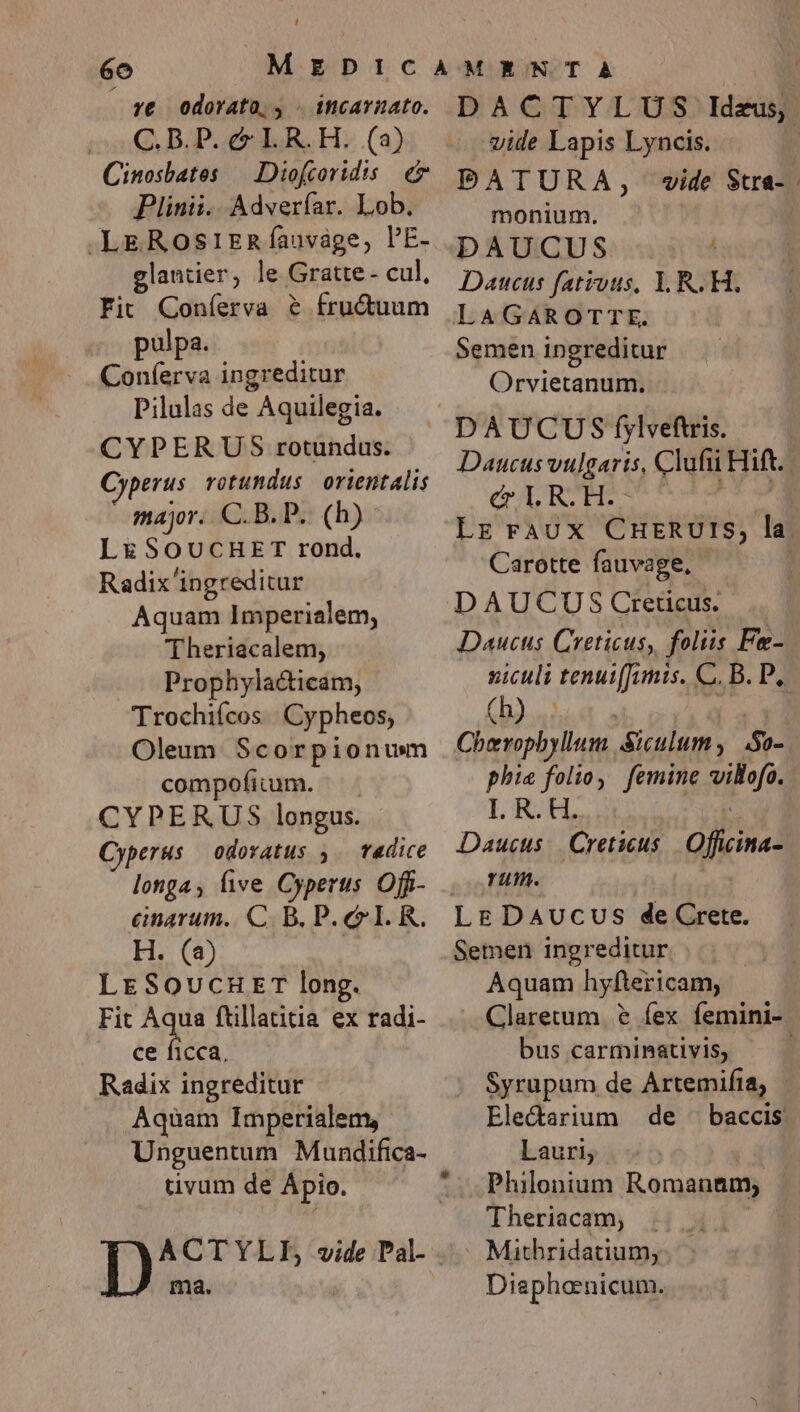 60 MEDICAMENTA
re odorato, incarnato.
C.B.P. & I.R.H. (a)
Cinosbatos Dioſcoridis &
Plinii. Adverſar. Lob.
LE ROSIER ſauvage, l'E-
glantier, le Gratte-cul,
Fit Conſerva è fructuum
pulpa.
Conſerva ingreditur
Pilulas de Aquilegia.
CYPERUS rotundus.
Cyperus rotundus orientalis
major. C.B.P. (h)
LE SOUCHET rond.
Radix ingreditur
Aquam Imperialem,
Theriacalem,
Prophylacticam,
Trochiſcos Cypheos,
Oleum Scorpionum
compoſitum.
CYPERUS longus.
Cyperus odoratus, radice
longa, ſive Cyperus Offi-
cinarum. C. B. P. & I. R.
H. (a)
LE SOUCHET long.
Fit Aqua ſtillatitia ex radi-
ce ſicca.
Radix ingreditur
Aquam Imperialem,
Unguentum Mundifica-
tivum de Apio.
DACTYLI, vide Pal-
ma.
DACTYLUS Idæus,
vide Lapis Lyncis.
DATURA, vide Stra-
monium.
DAUCUS
Daucus ſativus, I.R.H.
LA GAROTTE.
Semen ingreditur
Orvietanum.
DAUCUS ſylveſtris.
Daucus vulgaris, Cluſii Hiſt.
& I.R.H.
LE FAUX CHERUIS, la
Carotte ſauvage,
DAUCUS Creticus.
Daucus Creticus, foliis Fæ-
niculi tenuiſſimis. C. B. P.
(h)
Chærophyllum Siculum, So-
phiæ folio, ſemine villoſo.
I. R. H.
Daucus Creticus Officina-
rum.
LE DAUCUS de Crete.
Semen ingreditur
Aquam hyſtericam,
Claretum è ſex ſemini-
bus carminativis,
Syrupum de Artemiſia,
Electarium de baccis
Lauri,
Philonium Romanum,
Theriacam,
Mithridatium,
Diaphœnicum.